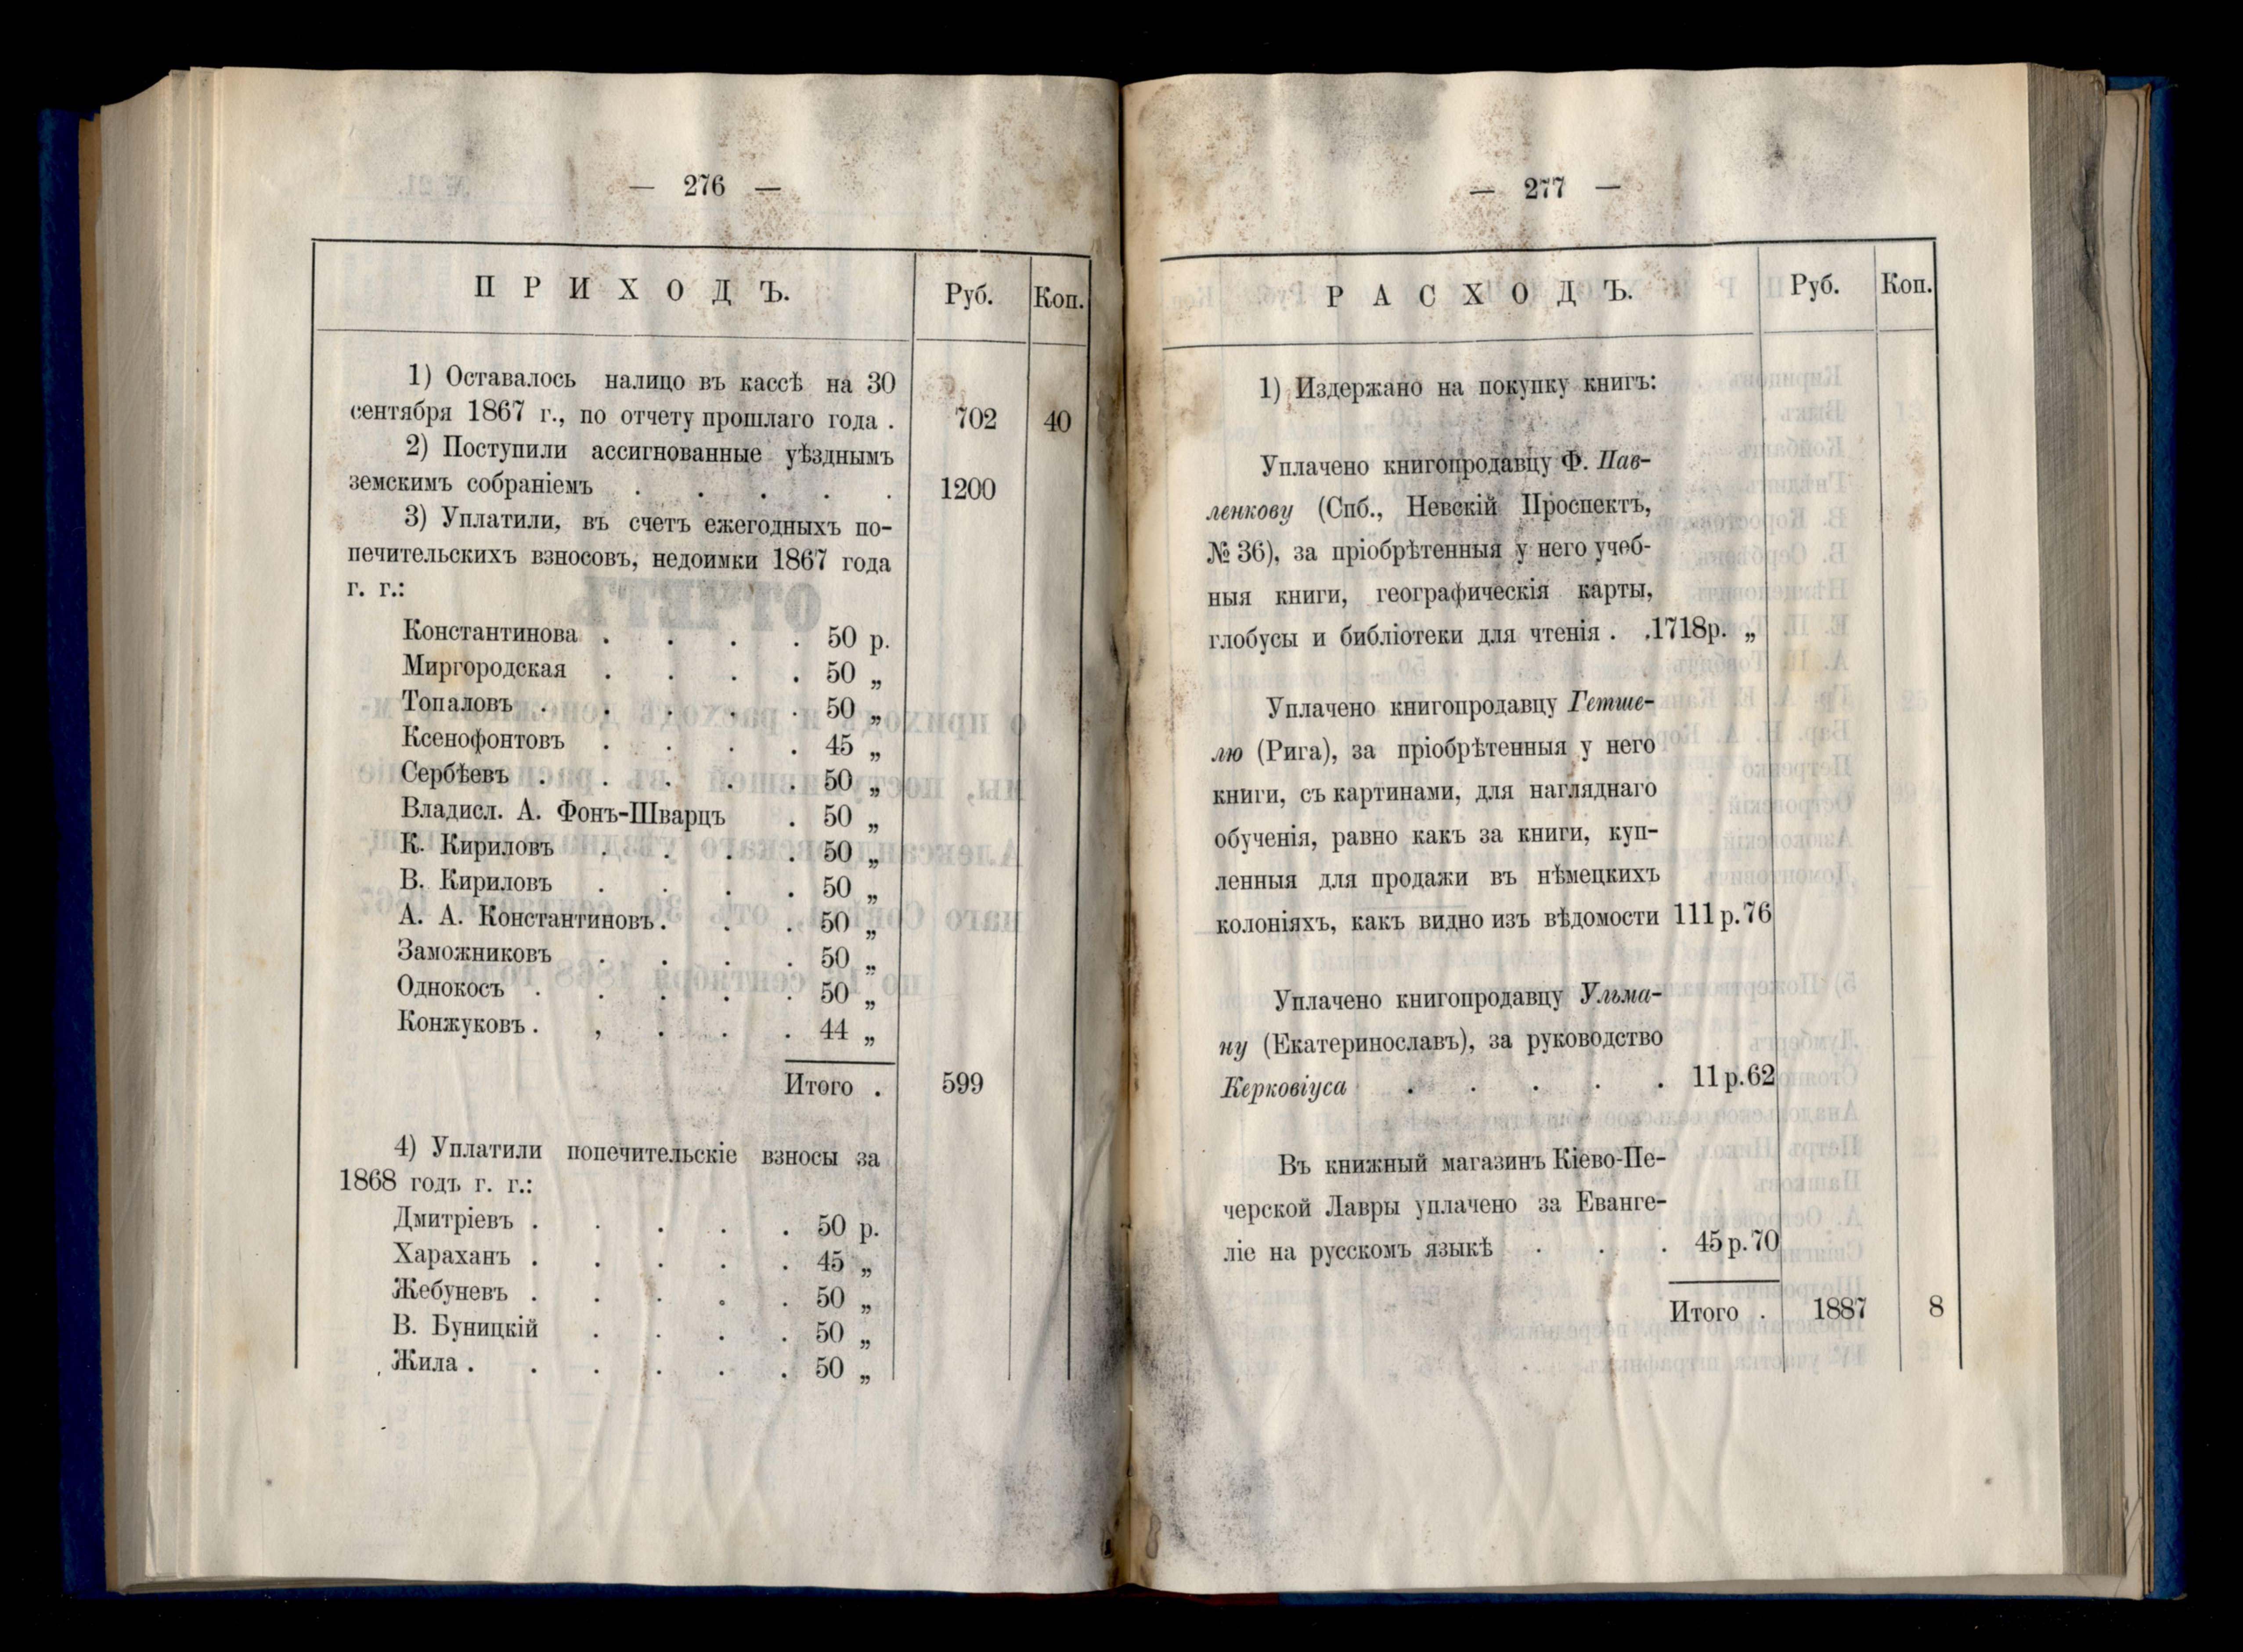 — 276 —
ПРИХОДЪ. Руб. Коп.
1) Оставалось налицо въ кассѣ на 30
сентября 1867 г., по отчету прошлаго года . 702 40
2) Поступили ассигнованные уѣзднымъ
земскимъ собраніемъ . . . . . 1200
3) Уплатили, въ счетъ ежегодныхъ по-
печительскихъ взносовъ, недоимки 1867 года
г. г.:
Константинова . . . . 50 р.
Миргородская . . . . 50 „
Топаловъ . . . . . 50 „
Ксенофонтовъ . . . . 45 „
Сербѣевъ . . . . . 50 „
Владисл. А. Фонъ-Шварцъ . 50 „
К. Кириловъ . . . . 50 „
В. Кириловъ . . . . 50 „
А. А. Константиновъ . . . 50 „
Заможниковъ . . . . 50 „
Однокосъ . . . . . 50 „
Конжуковъ . , . . . 44 „
Итого . 599
4) Уплатили попечительскіе взносы за
1868 годъ г. г.:
Дмитріевъ . . . . . 50 р.
Хараханъ . . . . . 45 „
Жебуневъ . . . . . 50 „
В. Буницкій . . . . 50 „
Жила . . . . . . 50 „
— 277 —
РАСХОДЪ. Руб. Коп.
1) Издержано на покупку книгъ:
Уплачено книгопродавцу Ф. Пав-
ленкову (Спб., Невскій Проспектъ,
№ 36), за пріобрѣтенныя у него учеб-
ныя книги, географическія карты,
глобусы и библіотеки для чтенія . .1718р. „
Уплачено книгопродавцу Гетше-
лю (Рига), за пріобрѣтенныя у него
книги, съ картинами, для нагляднаго
обученія, равно какъ за книги, куп-
ленныя для продажи въ нѣмецкихъ
колоніяхъ, какъ видно изъ вѣдомости 111р.76
Уплачено книгопродавцу Ульма-
ну (Екатеринославъ), за руководство
Керковіуса . . . . . 11р.62
Въ книжный магазинъ Кіево-Пе-
черской Лавры уплачено за Еванге-
ліе на русскомъ языкѣ . . . 45р.70
Итого . 1887 8